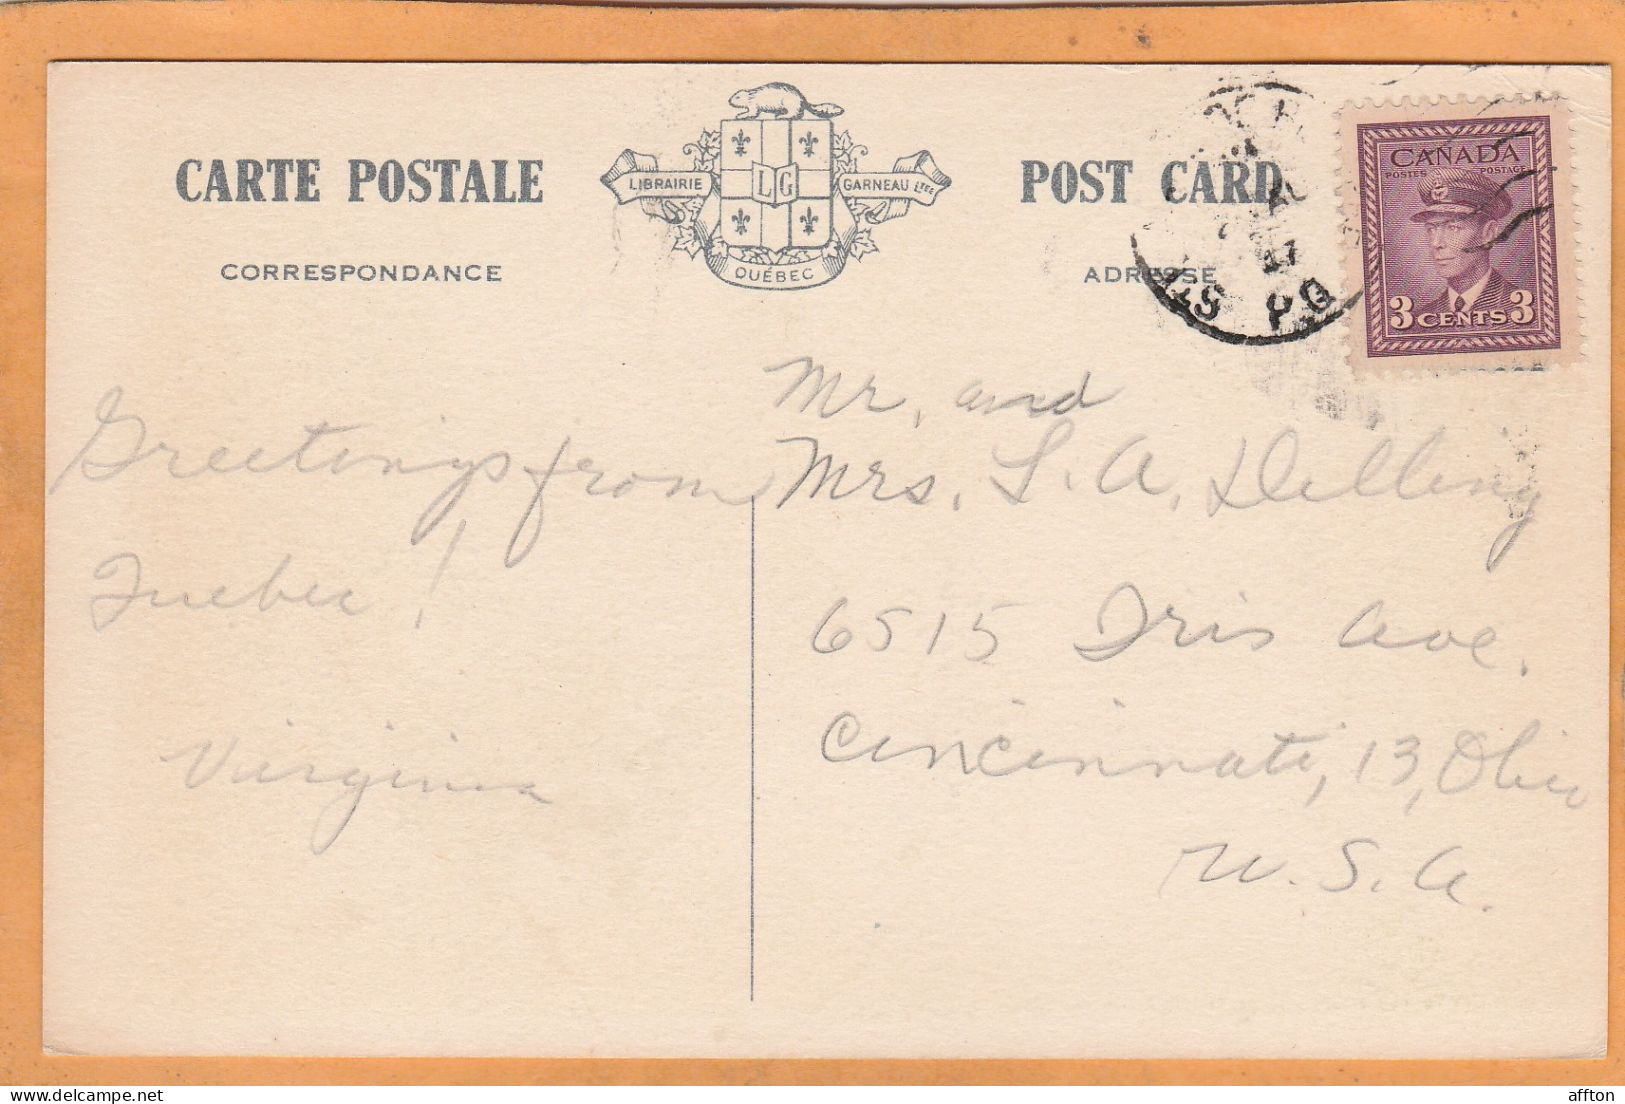 CARTE POSTALE
CORRESPONDANCE
LIBRAIRIE LG GARNEAU LTÉE
QUÉBEC
POST CARD
ADRESSE
P.Q
CANADA
POSTES POSTAGE
3 CENTS 3
Greetings from
Quebec!
Virginia
Mr. and
Mrs. L. A. Dilling
6515 Iris Ave.
Cincinnati, 13, Ohio
U.S.A.
affton